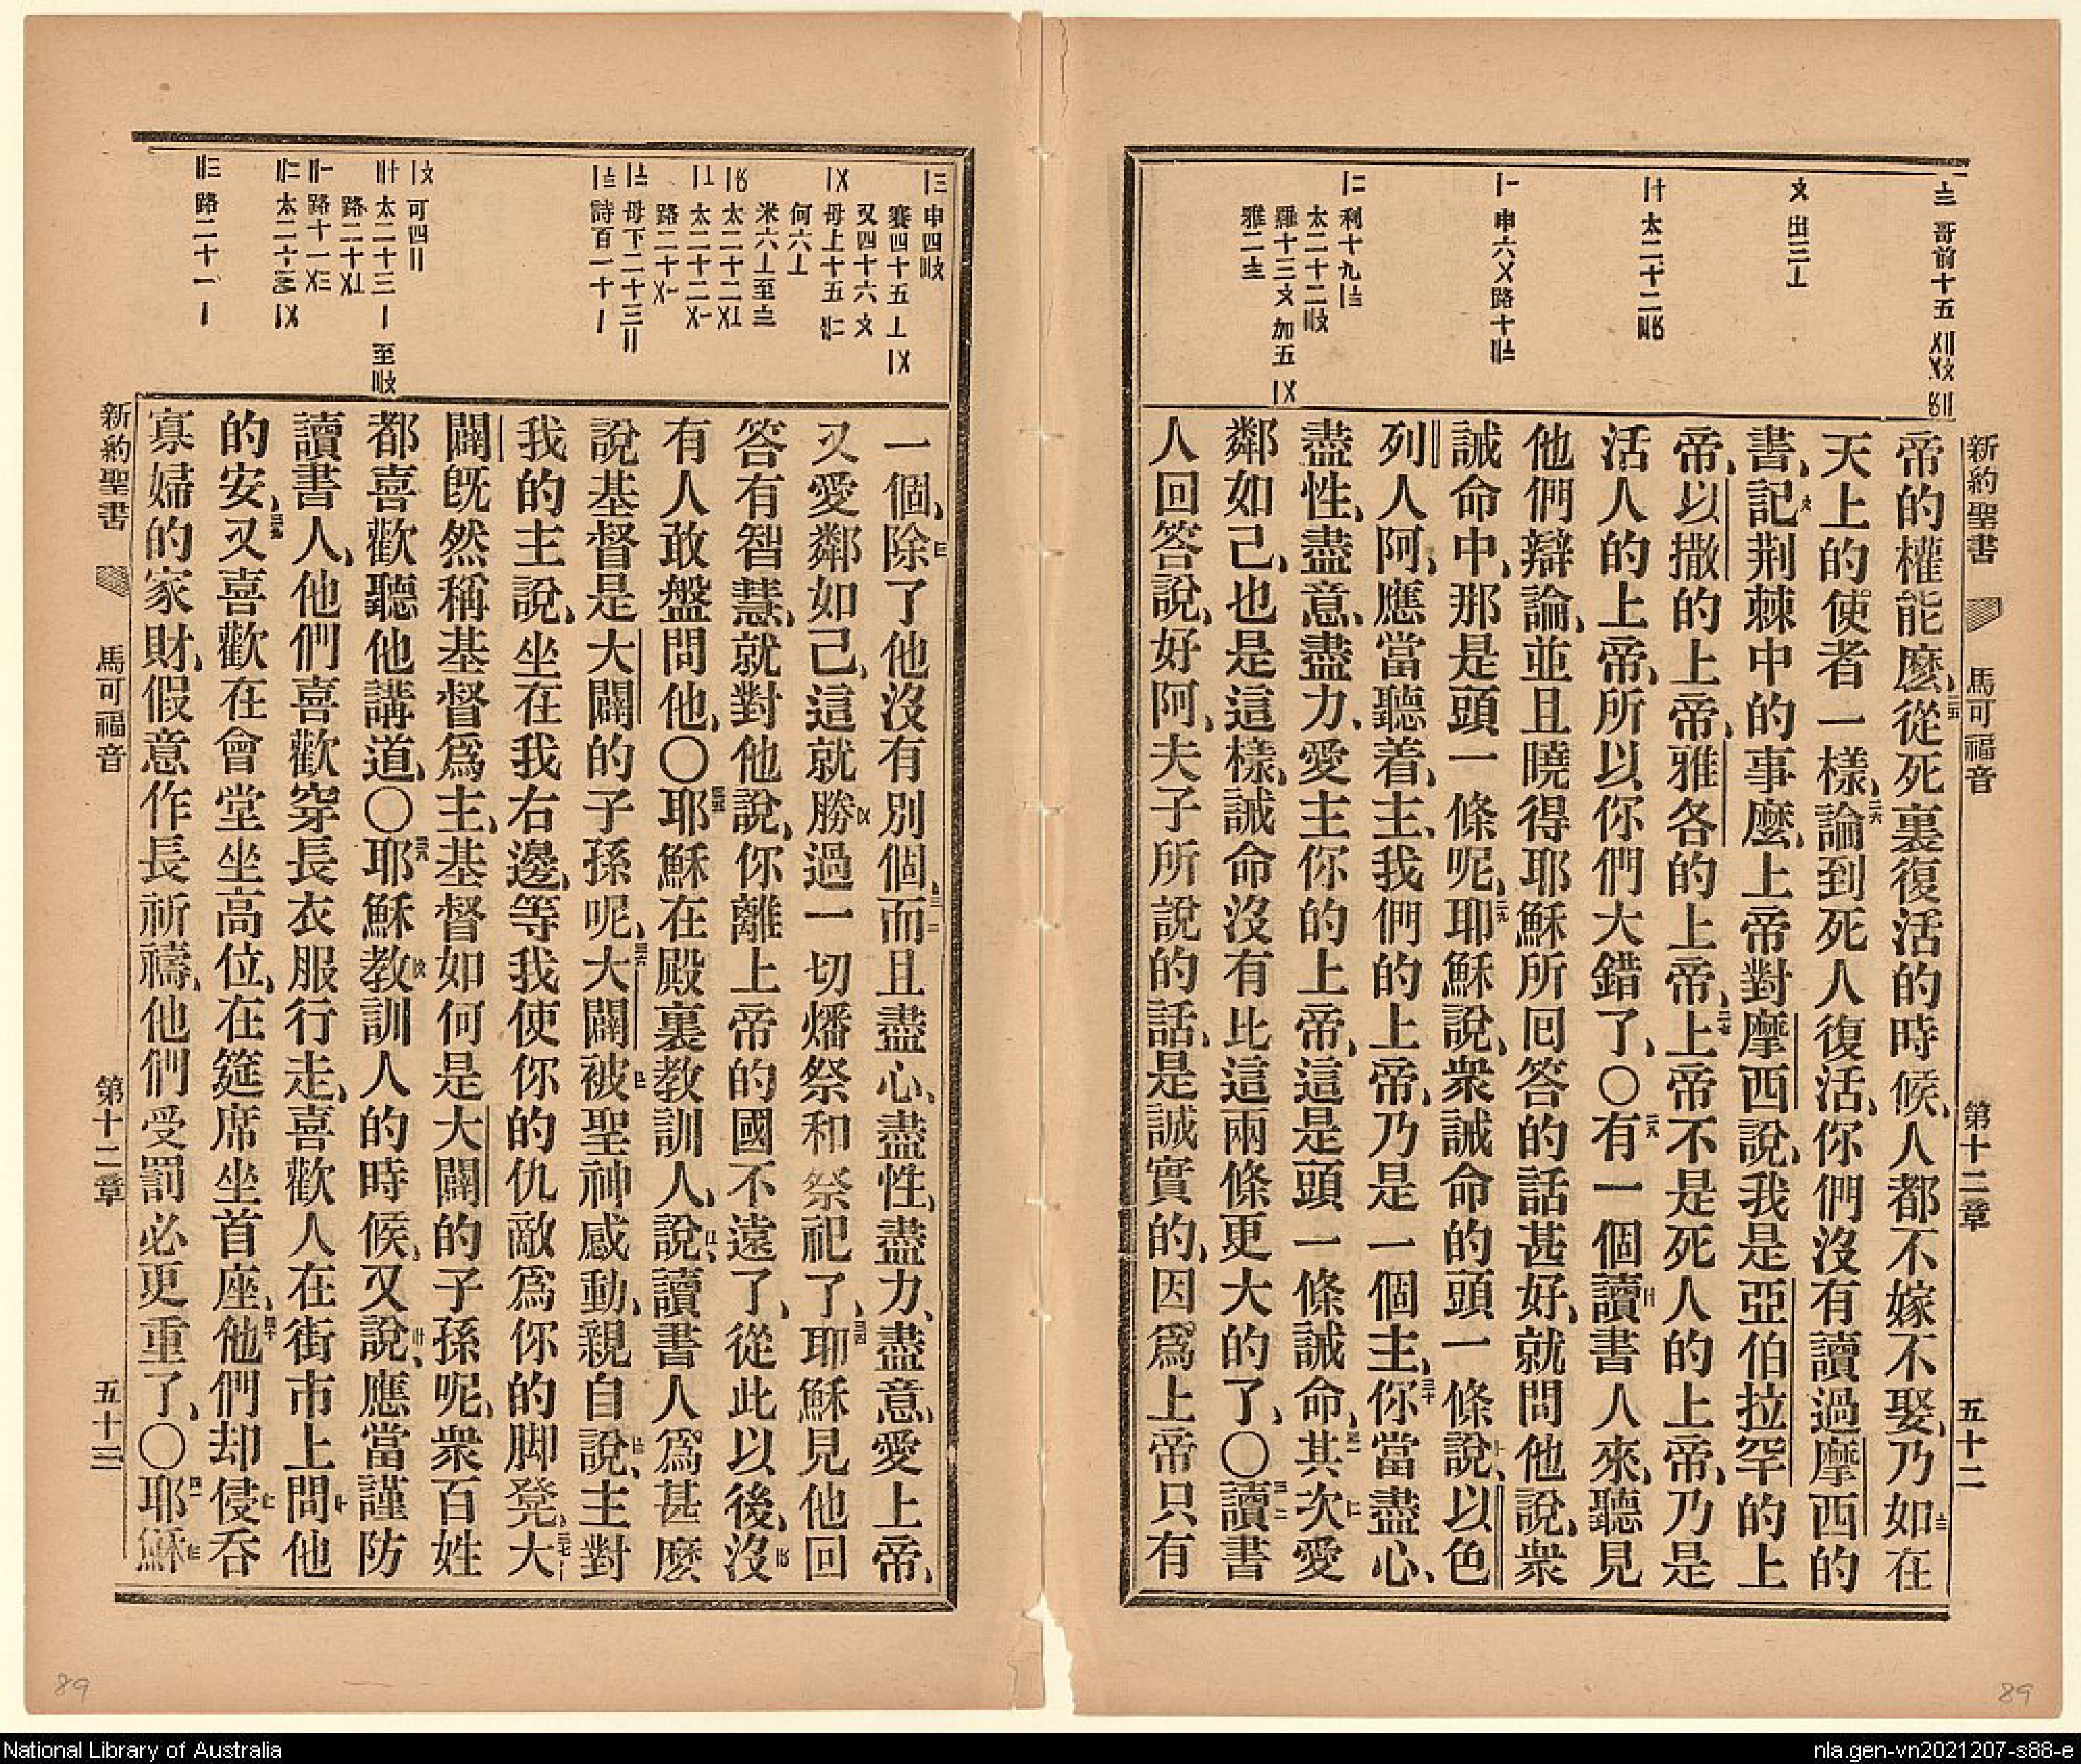 新約聖書 馬可福音 第十二章 五十二
哥前十五
出三
太二十二
申六 路十
利十九
太二十二
羅十三 加五
雅二
帝的權能麽、從死裏復活的時候、人都不嫁不娶、乃如在
天上的使者一樣、論到死人復活、你們沒有讀過摩西的
書、記荆棘中的事麽、上帝對摩西說、我是亞伯拉罕的上
帝、以撒的上帝、雅各的上帝、上帝不是死人的上帝、乃是
活人的上帝、所以你們大錯了、〇有一個讀書人來、聽見
他們辯論、並且曉得耶穌所回答的話甚好、就問他說、衆
誡命中、那是頭一條呢、耶穌說、衆誡命的頭一條說、以色
列人阿、應當聽着、主、我們的上帝、乃是一個主、你當盡心、
盡性、盡意、盡力、愛主你的上帝、這是頭一條誡命、其次愛
鄰如己、也是這樣、誡命沒有比這兩條更大的了、〇讀書
人回答說、好阿、夫子所說的話、是誠實的、因爲上帝只有
申四
賽四十五
又四十六
母上十五
何六
米六 至
太二十二
太二十二
路二十
母下二十三
詩百一十
可四
太二十三 至
路二十
路十一
太二十三
路二十一
一個、除了他沒有別個、而且盡心、盡性、盡力、盡意、愛上帝、
又愛鄰如己、這就勝過一切燔祭和祭祀了、耶穌見他回
答有智慧、就對他說、你離上帝的國不遠了、從此以後、沒
有人敢盤問他、〇耶穌在殿裏教訓人、說、讀書人爲甚麽
說基督是大闢的子孫呢、大闢被聖神感動、親自說、主對
我的主說、坐在我右邊、等我使你的仇敵爲你的脚凳、大
闢旣然稱基督爲主、基督如何是大闢的子孫呢、衆百姓
都喜歡聽他講道、〇耶穌教訓人的時候、又說、應當謹防
讀書人、他們喜歡穿長衣服行走、喜歡人在街市上問他
的安、又喜歡在會堂坐高位、在筵席坐首座、他們却侵吞
寡婦的家財、假意作長祈禱、他們受罰必更重了、〇耶穌
新約聖書 馬可福音 第十二章 五十三
89
89
National Library of Australia
nla.gen-vn2021207-s88-e